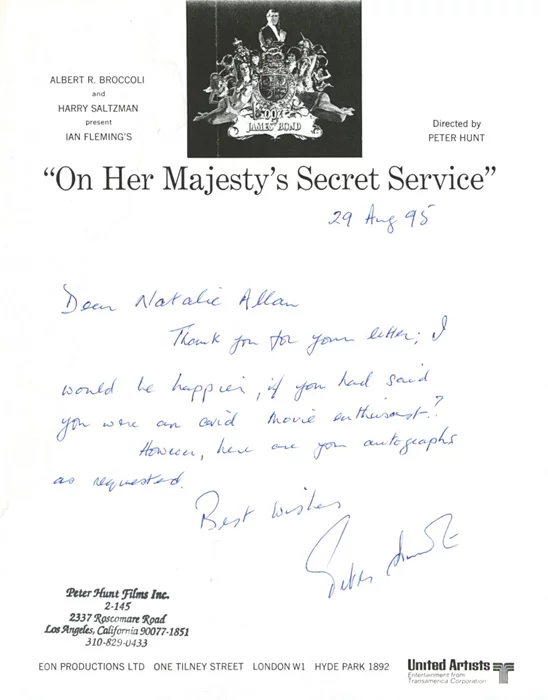 ALBERT R. BROCCOLI
and
HARRY SALTZMAN
present
IAN FLEMING'S
007
JAMES BOND
Directed by
PETER HUNT
“On Her Majesty’s Secret Service”
29 Aug 95
Dear Natalie Allan
Thank you for your letter; I
would be happier, if you had said
you were an avid movie enthusiast?
However, here are your autographs
as requested.
Best wishes
Peter Hunt
Peter Hunt Films Inc.
2-145
2337 Roscomare Road
Los Angeles, California 90077-1851
310-829-0433
EON PRODUCTIONS LTD ONE TILNEY STREET LONDON W1 HYDE PARK 1892
United Artists
Entertainment from
Transamerica Corporation